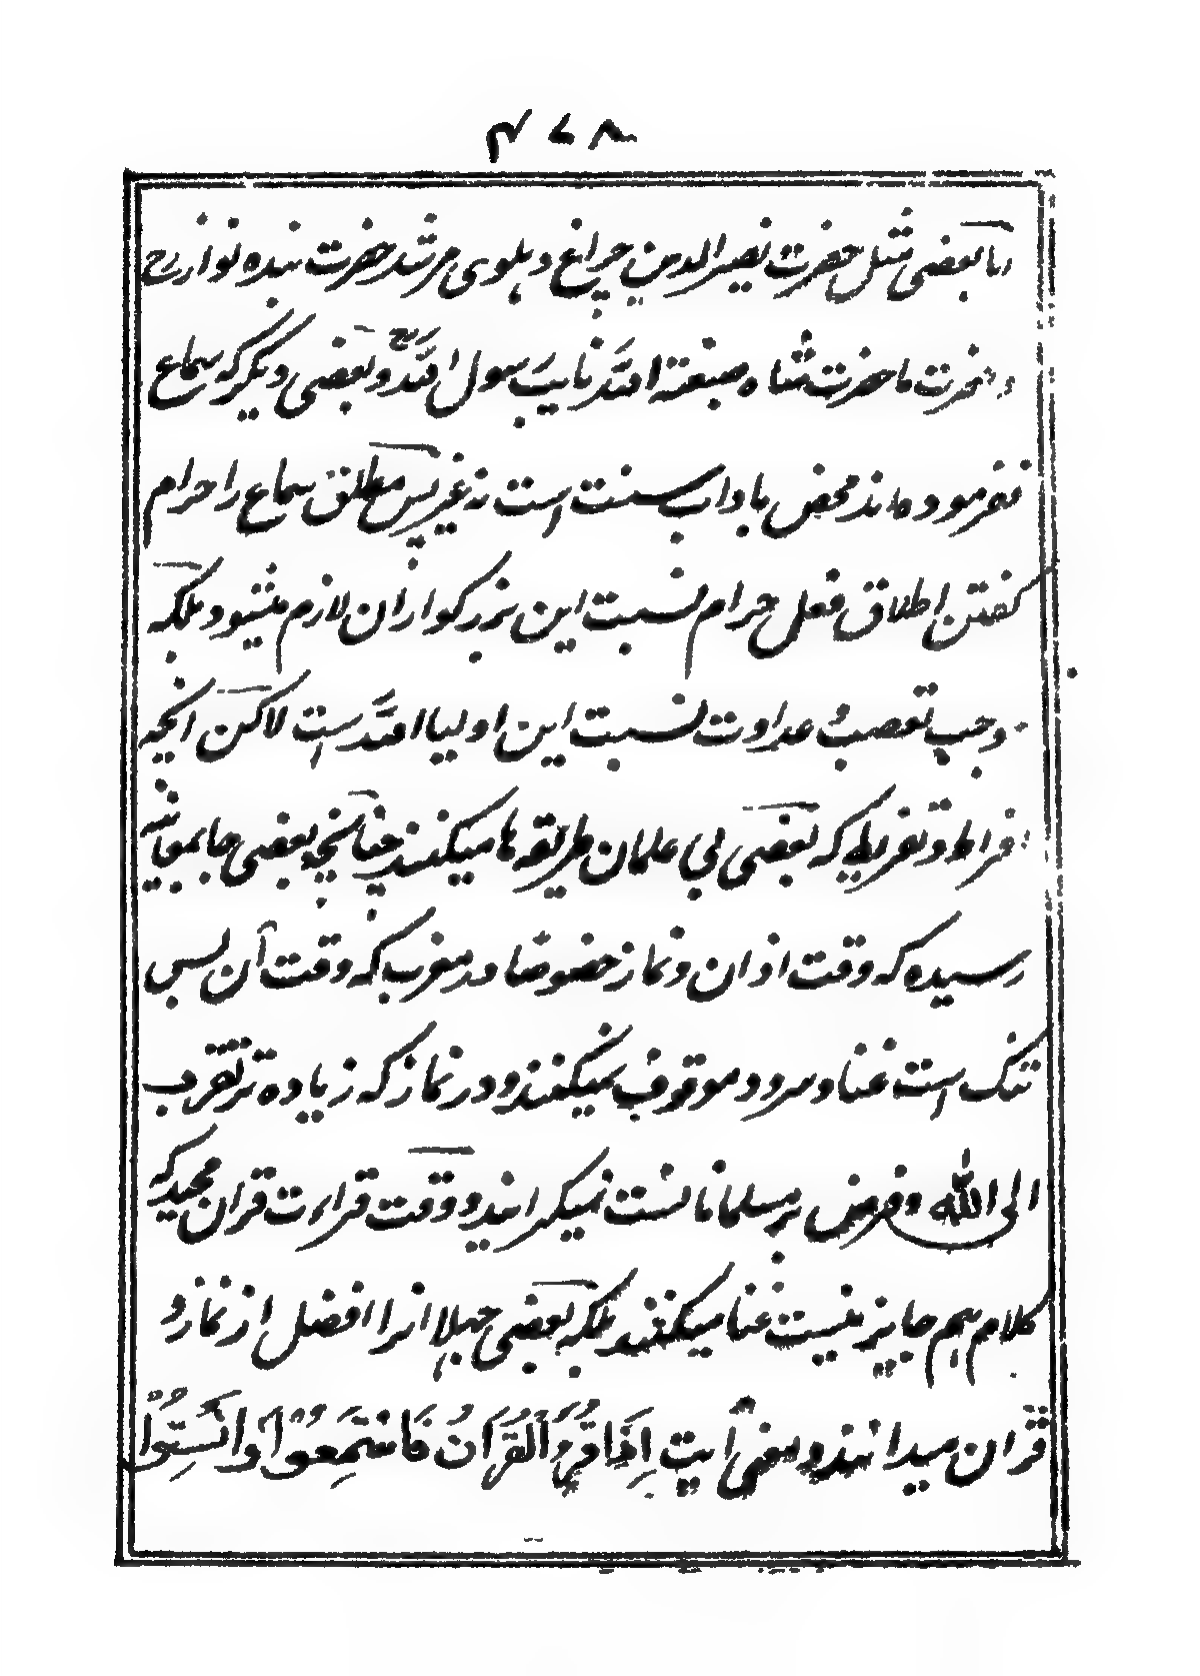 ۴۷۸
اما بعضی مثل حضرت نصیر الدین چراغ دہلوی مرشد حضرت بنده نوازرح
و حضرت ما حضرت شاه صبغته الله نایب رسول اللهرح و بعضی دیگر که سماع
نفرموده‌اند محض باداب سنت است نه غیر پس مطلق سماع را حرام
گفتن اطلاق فعل حرام نسبت این بزرگواران لازم میشود بلکه
وجب تعصب و عداوت نسبت این اولیا الله است لاکن انچه
افراط و تفریط که بعضی بی علمان طریقه ها میکنند چنانچه بعضی جا بمعاینه
رسیده که وقت اذان و نماز خصوصا در مغرب که وقت آن بس
تنک است غنا و سرود موقوف نمیکنند و در نماز که زیاده تر تقرب
الی الله و فرض بر مسلمانانست نمیکرایند و وقت قراءت قران مجید که
کلام هم جایز نیست غنا میکنند بلکه بعضی جهلا انرا افضل از نماز و
قران میدانند و معنی آیت اِذَا قُرِئَ الْقُرْآنُ فَاسْتَمِعُوْا وَاَنْسِتُوْا